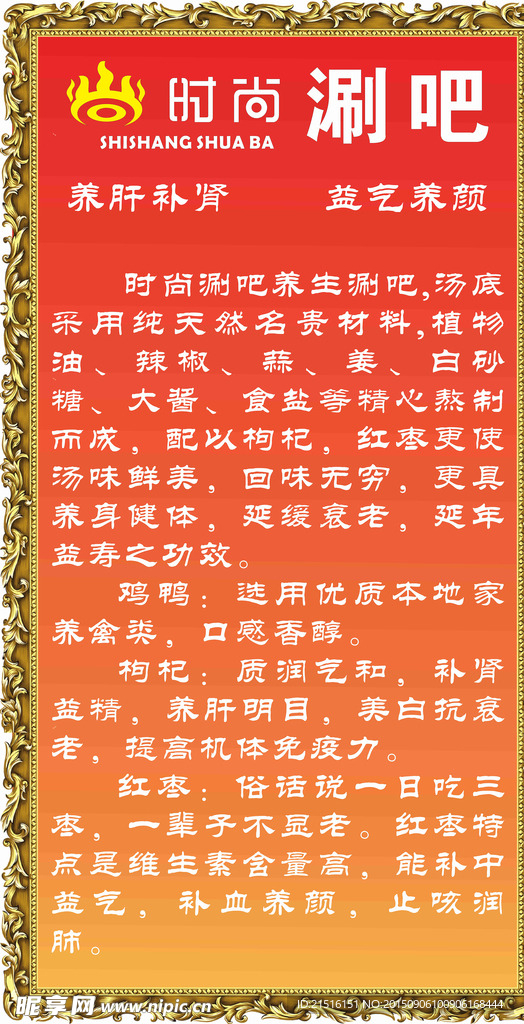 时尚 涮吧
SHISHANG SHUA BA
养肝补肾 益气养颜
时尚涮吧养生涮吧,汤底
采用纯天然名贵材料,植物
油、辣椒、蒜、姜、白砂
糖、大酱、食盐等精心熬制
而成，配以枸杞，红枣更使
汤味鲜美，回味无穷，更具
养身健体，延缓衰老，延年
益寿之功效。
鸡鸭：选用优质本地家
养禽类，口感香醇。
枸杞：质润气和，补肾
益精，养肝明目，美白抗衰
老，提高机体免疫力。
红枣：俗话说一日吃三
枣，一辈子不显老。红枣特
点是维生素含量高，能补中
益气，补血养颜，止咳润
肺。
昵享网 www.nipic.cn
ID:21516151 NO:20150906100906168444